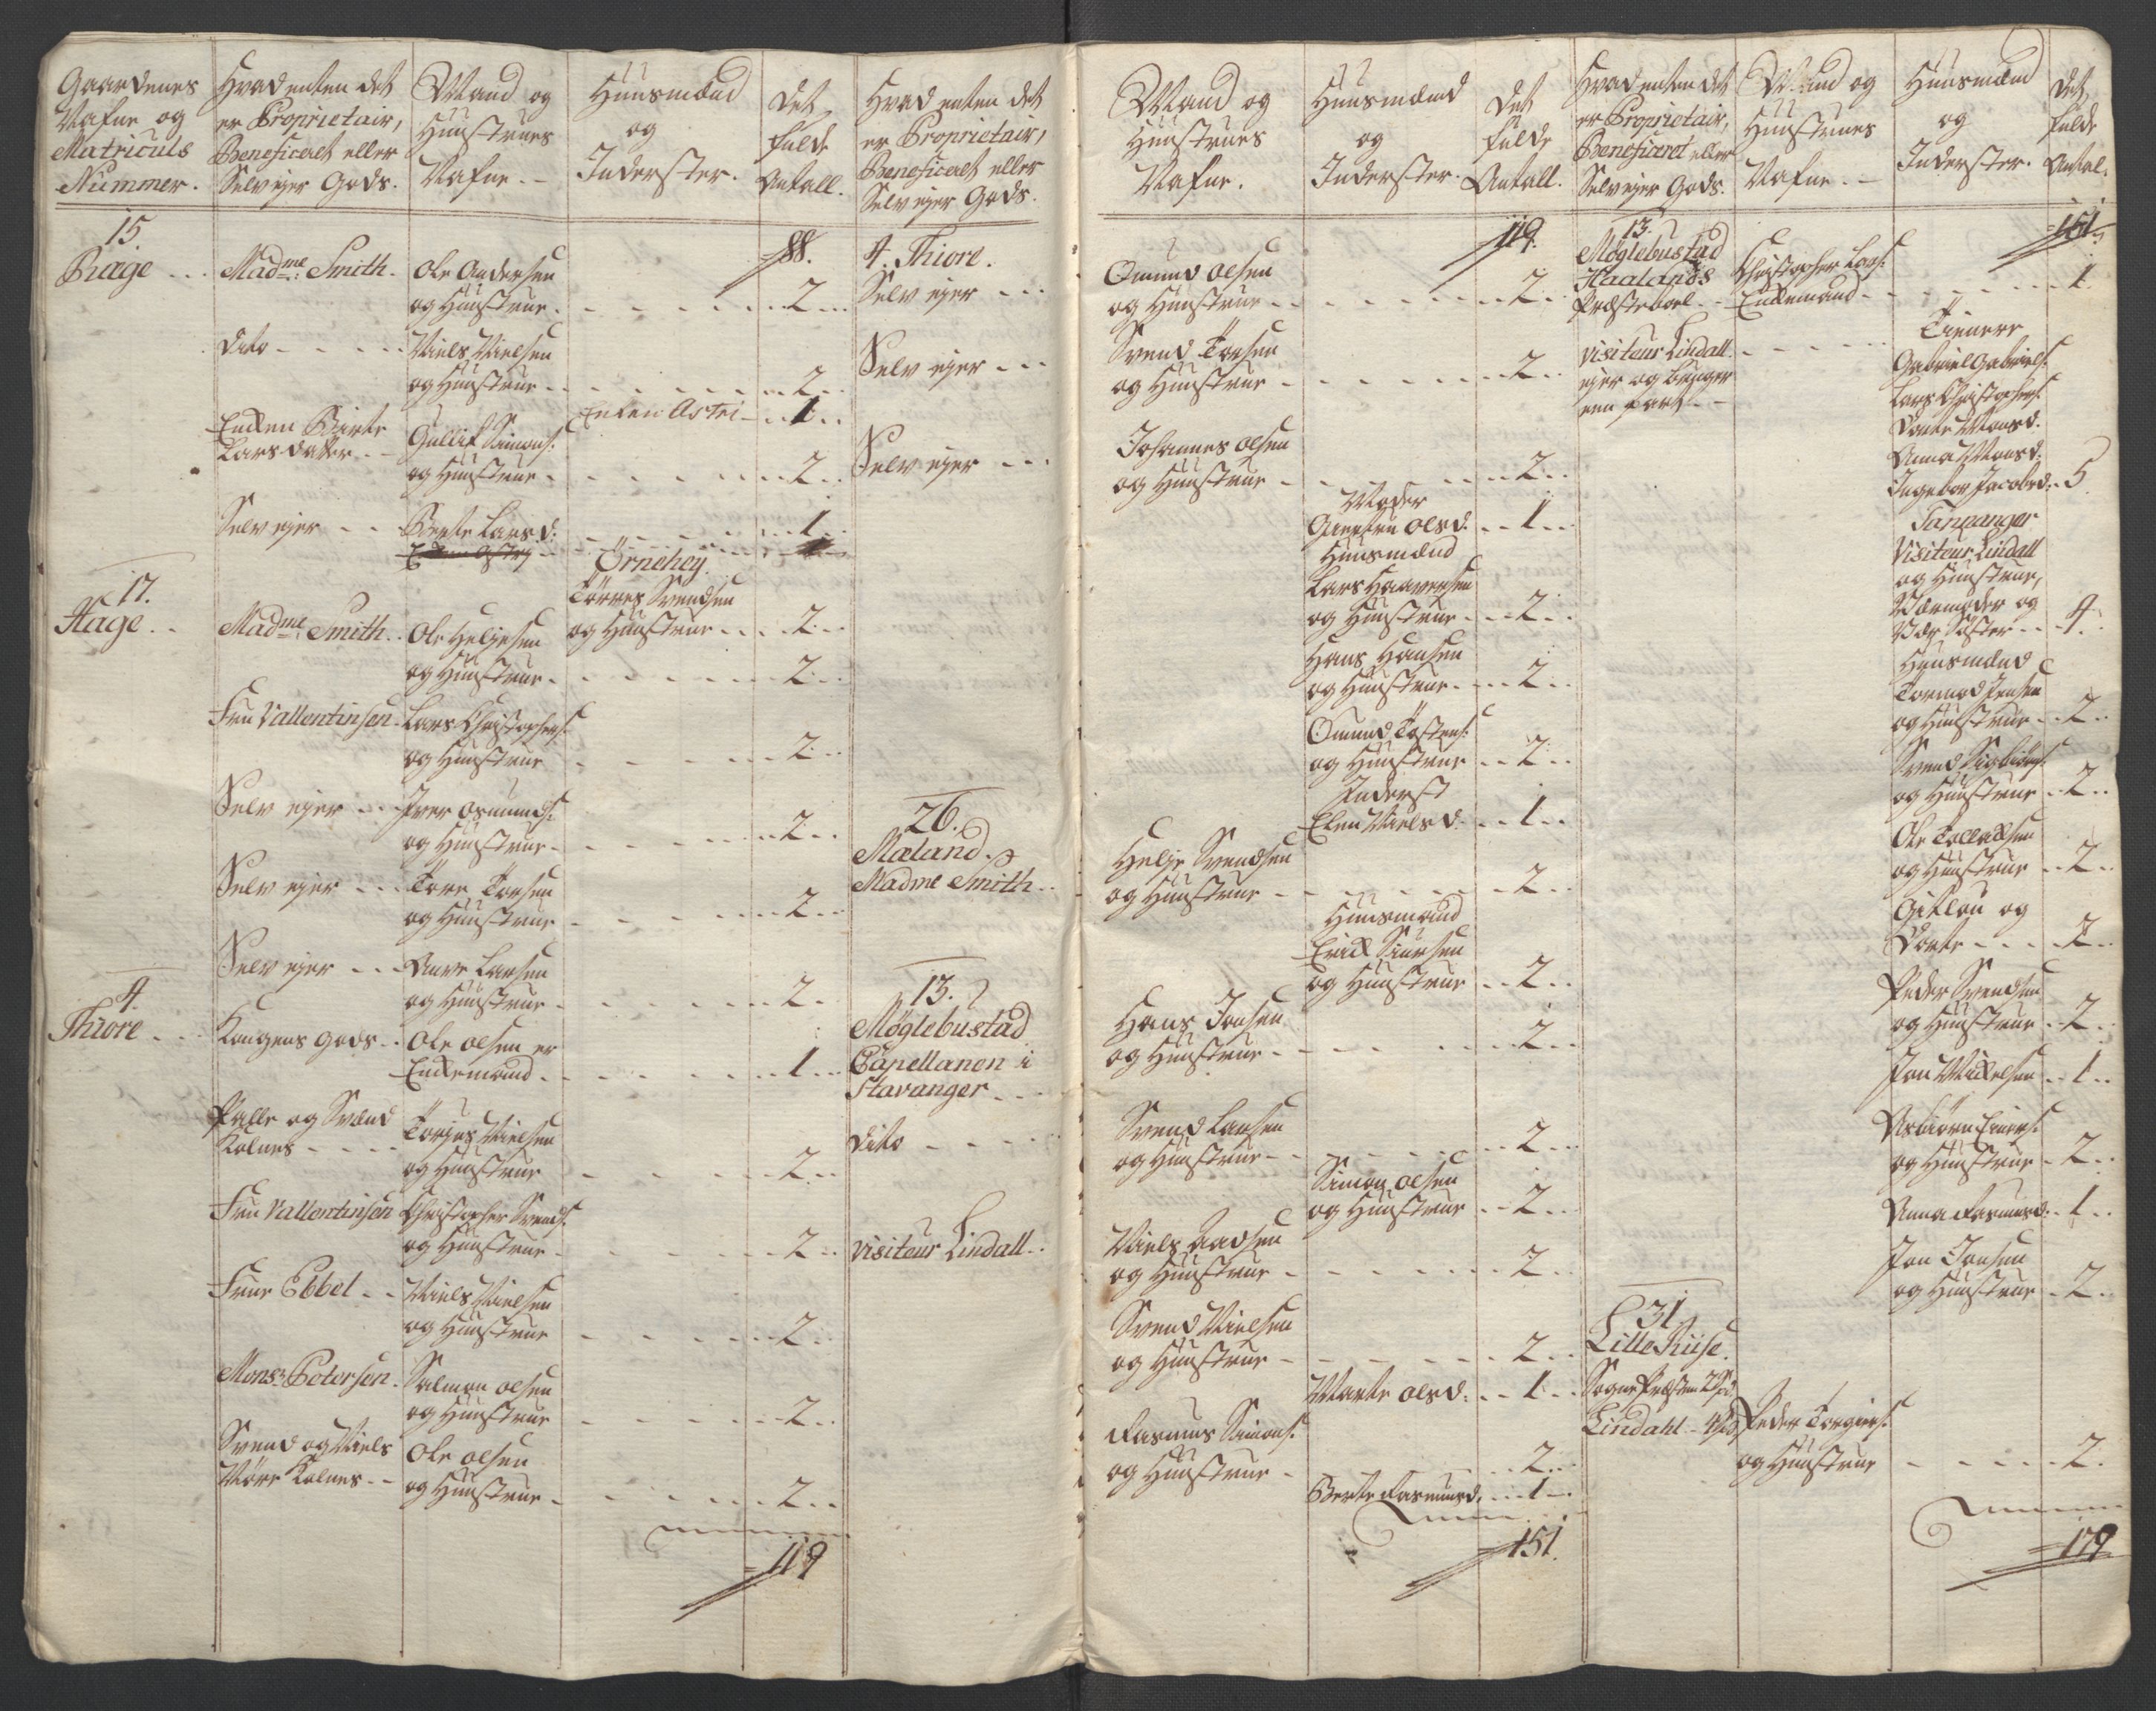 Gaardenes
Nafne og
Matriculs
Nummer.
Hvad enten det
er Proprietair,
Beneficeret eller
Selvejer Gods.
Mand og
Huustrues
Nafne. -
Huusmænd
og
Inderster.
Det
fulde
Antall.
15.
Ræge
Madme Smith.
88.
Ole Andersen
og Huustrue 2
Dito
Niels Nielsen
og Huustrue 2
Enken Astri 1
Enken Birte
Larsdatter
Gullik Simons:
og Huustrue 2
Selvejer
Berte Larsd: 1
Örnehey.
Törres Svendsen
og Huustrue 2
17.
Hage
Madme Smith
Ole Heljesen
og Huustrue 2
Fru Vallentinsen
Lars Christophers:
og Huustrue 2
Selv ejer
Iver Osmunds:
og Huustrue 2
Selv ejer
Tore Torsen
og Huustrue 2
Selv ejer
Anve Larsen
og Huustrue 2
4.
Thiore
Kongens Gods
Ole Olsen er
Enkemand 1
Palle og Svend
Kolnes
Torjus Nielsen
og Huustrue 2
Fru Vallentinsen
Christopher Svends:
og Huustrue 2
Frue Ebbel
Niels Nielsen
og Huustrue 2
Monsr Petersen
Salmon Olsen
og Huustrue 2
Svend og Niels
Nöre Kolnes
Ole Olsen
og Huustrue 2
119
Hvad enten det
er Proprietair,
Beneficeret eller
Selvejer Gods.
Mand og
Huustrues
Nafne.
Huusmænd
og
Inderster.
Det
fulde
Antall.
119.
4. Thiore.
Selv ejer
Omund Olsen
og Huustrue 2
Selv ejer
Svend Torsen
og Huustrue 2
Selv ejer
Johannes Olsen
og Huustrue 2
Moder
Olsd. 1
Huusmænd
Lars Haaversen
og Huustrue 2
Hans Hansen
og Huustrue 2
Omund Tostens:
og Huustrue 2
Inderst
Elen Nielsd. 1
26.
Mæland.
Madme Smith
Helje Svendsen
og Huustrue 2
Huusmand
Erick Siursen
og Huustrue 2
13.
Möglebustad
Capellanen i
Stavanger
Hans Jonsen
og Huustrue 2
Dito
Svend Larsen
og Huustrue 2
Simon Olsen
og Huustrue 2
Visiteur Lindall
Niels Aadsen
og Huustrue 2
Svend Nielsen
og Huustrue 2
Marte Olsd: 1
Rasmus Simons:
og Huustrue 2
Berte Rasmusd. 1
151.
Hvad enten det
er Proprietair,
Beneficeret eller
Selvejer Gods.
Mand og
Huustrues
Nafne. -
Huusmænd
og
Inderster.
Det
fulde
Antal.
151
13.
Möglebustad
Haalands
Præsteboel
Christopher Lars:
Enkemand 1
Visiteur Lindall.
ejer og bruger
een part
Tienere
Gabriel Gabriels:
Lars Christophers:
Dorte Monsd.
Anna Monsd:
Ingebor Jacobsd: 5
Tananger
Visiteur Lindall
og Huustrue,
Værmoder og
Vær Söster 4
Huusmænd
Tormod Jensen
og Huustrue 2
Svend Sigbiörns:
og Huustrue 2
Ole Tollaksen
og Huustrue 2
Gitlou og
Dorte 2
Peder Svendsen
og Huustrue 2
Jon Mikelsen 1
Asbiörn Einers:
og Huustrue 2
Anna Rasmusd. 1
Jon Jonsen
og Huustrue 2
31.
Lille Riise.
Sogne Præsten 2
Lindahl
Peder Torgiers:
og Huustrue 2.
179